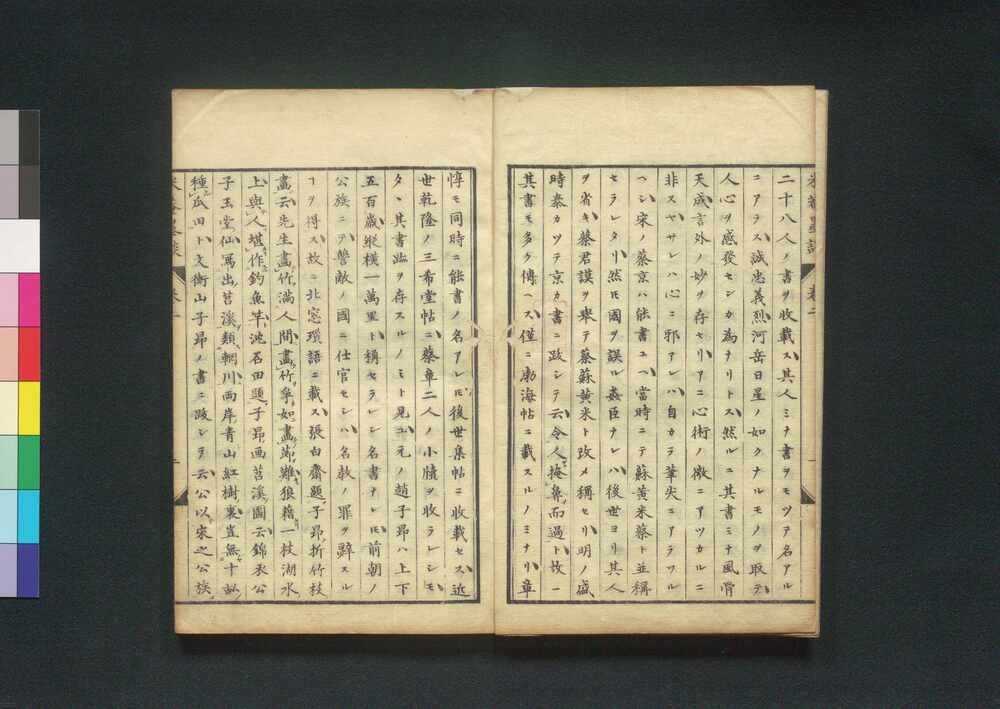 二十八人ノ書ヲ收載ス其人ミナ書ヲモツテ名アル
ニアラス誠忠義烈河岳日星ノ如クナルモノヲ取テ
人心ヲ感發セシカ為ナリトス然ルニ其書ミナ風骨
天成言外ノ妙ヲ存セリコヽニ心術ノ微ニアツカルニ
非スヤサレハ心ニ邪アレハ自カラ筆尖ニアラワル
ヘシ宋ノ蔡京ハ能書ユヘ當時ニテ蘇黄米蔡ト並稱
セラレタリ然㆑𪜈國ヲ誤ル姦臣ナレハ後世ヨリ其人
ヲ省キ蔡君謨ヲ擧テ蔡蘇黄米ト改メ稱セリ明ノ盛
時泰カツテ京カ書ニ跋シテ云令人掩鼻而過ト故ニ
其書モ多ク傳ヘス僅ニ渤海帖ニ載スルノミナリ章
惇モ同時ニ能書ノ名アレ𪜈後世集帖ニ收載セス近
世乾隆ノ三希堂帖ニ蔡章二人ノ小牘ヲ收ラレシモ
タヽ其書幽ヲ存スルノミト見ユ元ノ趙子昂ハ上下
五百歳縱横一萬里ト稱セラレシ名書ナレ𪜈前朝ノ
公族ニテ讐敵ノ國ニ仕官セシハ名教ノ罪ヲ辭スル
ヿヲ得ス故ニ北窓瑣語ニ載ス張白齋題子昂折竹枝
畫云先生畫竹滿人間畫竹爭如畫節難狼藉一枝湖水
上與人堪作釣魚竿沈石田題子昂画苕溪圖云錦衣公
子玉堂仙寫出苕溪類輞川両岸青山紅樹裏豈無十畝
種瓜田ト文衡山子昂ノ書ニ跋シテ云公以宋之公族